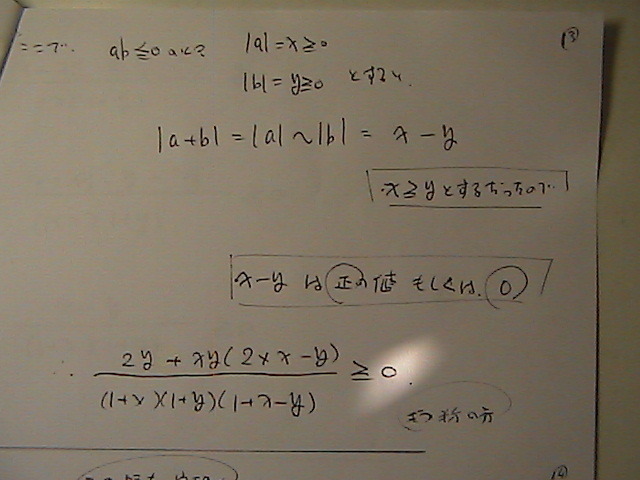 ここで、 ab≦0 のとき |a|=x≧0
|b|=y≧0 とすると、
|a+b|=|a|~|b|= x-y
x≧yとする
x-y は 正の値 もしくは、0
∴ \frac{2y+xy(2+x-y)}{(1+x)(1+y)(1+x-y)} ≧ 0.
の方